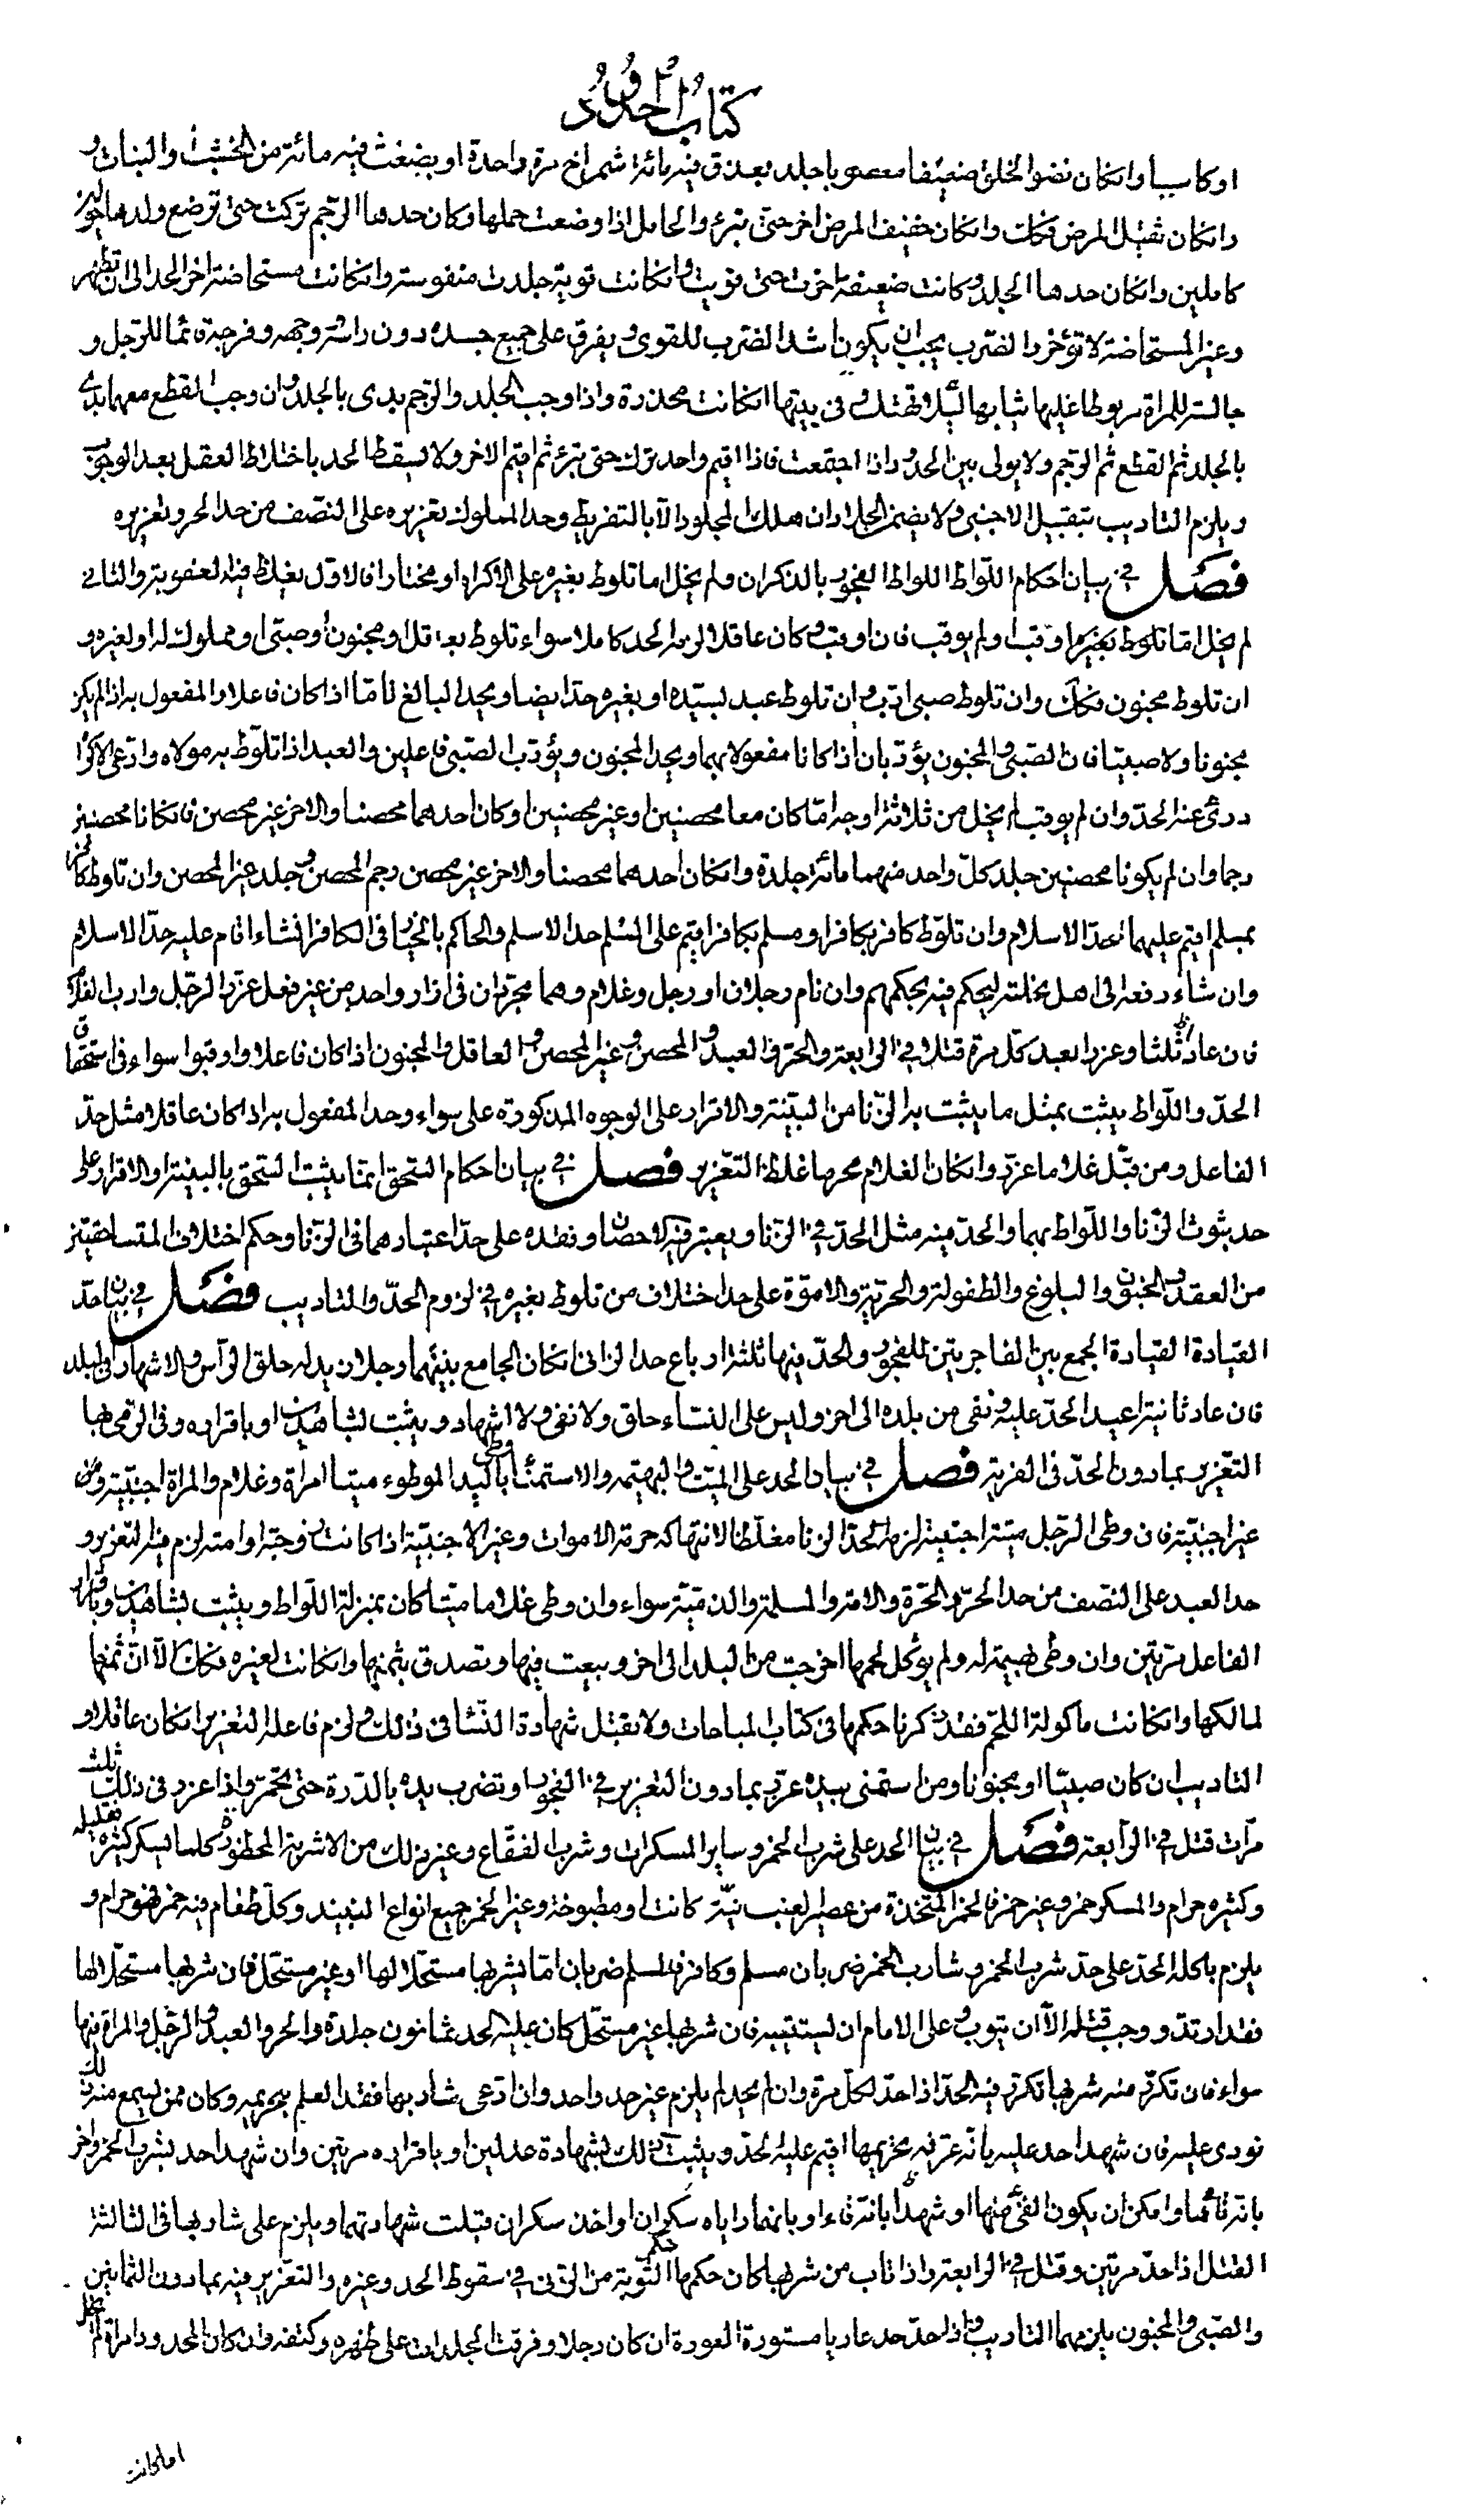 كتاب الحدود
او كاسيا وانكان نضو الخلق ضعيفا جلد بعذق فيه مائة شمراخ مرة واحدة او بضغث فيه مائة من الخشب والنبات و
وانكان ثقيل المرض فكك وانكان خفيف المرض اخر حتى تبرء والحامل اذا وضعت حملها وكان حدها الرجم تركت حتى ترضع ولدها حولين
كاملين وانكان حدها الجلد وكانت ضعيفة اخرت حتى قويت وانكانت قوية جلدت منفوسة وانكانت مستحاضة اخر الحد الى ان تطهر
وغير المستحاضة لا تؤخر والضرب يجب ان يكون اشد الضرب للقوى ويفرق على جميع جسده دون راسه ووجهه وفرجه قائما للرجل و
جالسة للمراة مربوطا عليها ثيابها لئلا تهتك وفى بيتها انكانت مخدرة واذا وجب الجلد والرجم بدى بالجلد وان وجب القطع معهما بدئ
بالجلد ثم القطع ثم الرجم ولا يوالى بين الحدود اذا اجتمعت فاذا اقيم واحد ترك حتى تبرء ثم اقيم الاخر ولا يسقط الحد باختلاط العقل بعد الوجوب
ويلزم التاديب بتقبيل الاجنبى ولا يضمن الجلاد ان هلك المجلود الا بالتفريط وحد المملوك تعزيره على النصف من حد الحر وتعزيره
فصل فى بيان احكام اللواط اللواط الفجور بالذكران ولم يخل اما تلوط بغيره على الاكراه او مختارا فالاول يغلظ فيه العقوبة والثانى
لم يخل اما تلوط بغيره اوقب او لم يوقب فان اوقب وكان عاقلا لزمه الحد كاملا سواء تلوط بعاقل او مجنون او صبى او مملوك له او لغيره و
ان تلوط مجنون فكك وان تلوط صبى ادب وان تلوط عبد بسيده او بغيره حد ايضا ويحد البالغ تاما اذا كان فاعلا والمفعول به اذا لم يكن
مجنونا ولا صبيا فان الصبى والمجنون يؤدبان اذا كانا مفعولا بهما ويحد المجنون ويؤدب الصبى فاعلين والعبد اذا تلوط به مولاه وادعى الاكراه
درئ عنه الحد وان لم يوقب لم يخل من ثلاثة اوجه اما كان معا محصنين او غير محصنين او كان احدهما محصنا والاخر غير محصن فانكانا محصنين
رجما وان لم يكونا محصنين جلد كل واحد منهما مائة جلدة وانكان احدهما محصنا والاخر غير محصن رجم المحصن وجلد غير المحصن وان تلوط كافر
بمسلم اقيم عليهما حد الاسلام وان تلوط كافر بكافر او مسلم بكافر اقيم على المسلم حد الاسلام والحاكم بالخيار فى الكافر انشاء اقام عليه حد الاسلام
وان شاء رفعه الى اهل نحلته ليحكم فيه بحكمهم وان نام رجلان او رجل وغلام وهما مجردان فى ازار واحد من غير فعل عزر الرجل وادب الغلام
فان عاد ثلثا وعزر العبد كل مرة قتلا فى الرابعة والحر والعبد والمحصن وغير المحصن والعاقل والمجنون اذا كان فاعلا واوقبوا سواء فى استحقاق
الحد واللواط يثبت بمثل ما يثبت به الزنا من البينة والاقرار على الوجوه المذكورة على سواء وحد المفعول به اذا كان عاقلا مثل حد
الفاعل ومن قبل غلاما عزر وانكان الغلام محرما غلظ التعزير فصل فى بيان احكام السحق انما يثبت السحق بالبينة او الاقرار على
حد ثبوت الزنا واللواط بهما والحد فيه مثل الحد فى الزنا ويعتبر فيه الاحصان وفقده على حد اعتبارهما فى الزنا وحكم اختلاف المتساحقتين
من العقل والجنون والبلوغ والطفولة والحرية والاموة على حد اختلاف من تلوط بغيره فى لزوم الحد والتاديب فصل فى بيان حد
القيادة القيادة الجمع بين الفاجرين للفجور والحد فيها ثلثة ارباع حد الزانى انكان الجامع بينهما رجلا ويبدله حلق الراس والاشهار فى البلد
فان عاد ثانية اعيد الحد عليه ونفى من بلده الى اخر وليس على النساء حلق ولا نفى ولا اشهار ويثبت بشاهدين او باقراره وفى الرمى بها
التعزير بما دون الحد فى الفرية فصل فى بيان الحد على وطى الميت والبهيمة والاستمناء باليد الموطوء ميتا امراة وغلام والمراة اجنبية ومن
غير اجنبية فان وطى الرجل ميتة اجنبية لزمه حد الزنا مغلظا لانتهاكه حرمة الاموات وغير الاجنبية اذا كانت زوجته او امته لزم فيه التعزير و
حد العبد على النصف من حد الحر والحرة والامة والمسلمة والذمية سواء وان وطى غلاما ميتا كان بمنزلة اللواط ويثبت بشاهدين وباقرار
الفاعل مرتين وان وطى بهيمة له ولم يؤكل لحمها اخرجت من البلد الى اخر وبيعت فيها وتصدق بثمنها وانكانت لغيره فكك الا ان ثمنها
لمالكها وانكانت ماكولة اللحم فقد ذكرنا حكمها فى كتاب المباحات ولا يقبل شهادة النساء فى ذلك ولزم فاعله التعزير انكان عاقلا و
التاديب ان كان صبيا او مجنونا ومن استمنى بيده عزر بما دون التعزير فى الفجور وتضرب يده بالدرة حتى تحمر واذا عزر فى ذلك ثلث
مرات قتل فى الرابعة فصل فى بيان الحد على شرب الخمر وساير المسكرات وشرب الفقاع وغير ذلك من الاشربة المحظورة كلما يسكر كثيره فقليله
وكثيره حرام والمسكر خمر وغير خمر فالخمر المتخذة من عصير العنب نية كانت او مطبوخة وغير الخمر جميع انواع النبيذ وكل طعام فيه خمر فهو حرام و
يلزم باكله الحد على حد شرب الخمر وشارب الخمر ضربان مسلم وكافر فالمسلم ضربان اما يشربها مستحلا لها او غير مستحل فان شربها مستحلا لها
فقد ارتد ووجب قتله الا ان يتوب وعلى الامام ان يستتيبه فان شربها غير مستحل كان عليه الحد ثمانون جلدة والحر والعبد والرجل والمراة فيها
سواء فان تكرر منه شربها تكرر فيه الحد اذا حد لكل مرة وان لم يحد لم يلزم غير حد واحد وان ادعى شاربها فقد العلم بتحريمه وكان ممن يسمع منه ذلك
نودى عليه فان شهد احد عليه بانه عرفه تحريمها اقيم عليه الحد ويثبت ذلك بشهادة عدلين او باقراره مرتين وان شهد احد بشرب الخمر واخر
بانه قائها وامكن ان يكون القئ منها او شهدا بانه قاء او بانهما راياه سكران او اخذ سكران قبلت شهادتهما ويلزم على شاربها فى الثالثة
القتل اذا حد مرتين وقتل فى الرابعة واذا تاب من شربها كان حكمها حكم التوبة من الزنا فى سقوط الحد وغيره والتعزير فيه بما دون الثمانين
والصبى والمجنون يلزمهما التاديب واذا حد حد عاريا مستورة العورة ان كان رجلا وفرقت الجلدات على ظهره وكتفه وان كان المحدود امراة لم
اما كانت